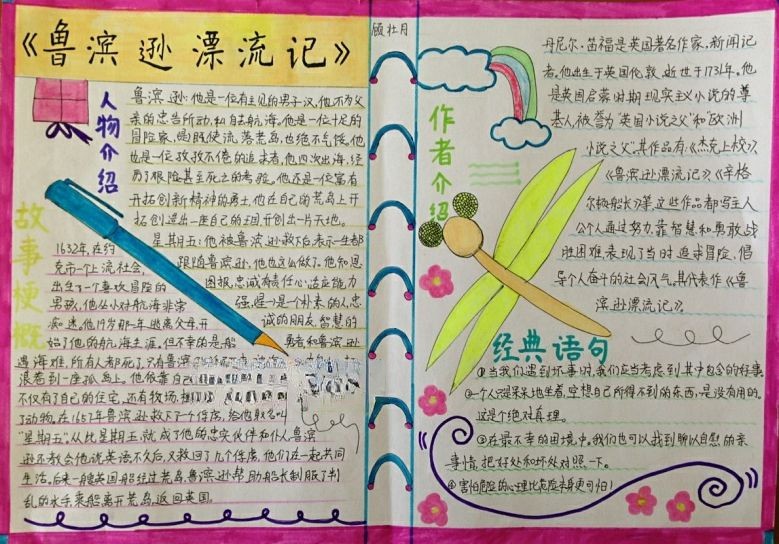 《鲁滨逊漂流记》
人物介绍
鲁滨逊:他是一位有主见的男子汉,他不为父
亲的忠当所动,私自去航海,他是一位十足的
冒险家,是即使流落荒岛,也绝不气馁。他
也是一位孜孜不倦的追求者,他四次出海,经
历了艰险甚至死亡的考验。他还是一位富有
开拓创新精神的勇士,他在自己的荒岛上开
拓创造出一座自己的王国,开创出一片天地。
星期五:他被鲁滨逊救下后表示一生都
跟随鲁滨逊,他也这么做了。他知恩
图报,忠诚有责任心,适应能力
强,是个朴素的人,忠
诚的朋友,智慧的
勇者和鲁滨逊
故事梗概
1632年,在约
克市一个上流社会,
出生了一个喜欢冒险的
男孩,他从小对航海非常
知迷。他19岁那一年,逃离父母,开
始了他的航海生涯,但不幸的是,船
遇海难,所有人都死了,只有鲁滨
浪卷到一座孤岛上。他依靠自
不仅有了自己的住宅,还有牧场,
了动物。在1657年鲁滨逊救下了一个俘虏,给他取名叫
"星期五",从此星期五就成了他的忠实伙伴和仆人鲁滨
逊还教会他说英语不久后,又救回了几个俘虏,他们在一起共同
生活。后来一艘英国船经过荒岛,鲁滨逊帮助船长制服了判
乱的水手乘船离开荒岛,返回英国。
顾壮月
作者介绍
丹尼尔·笛福是英国著名作家,新闻记
者。他出生于英国伦敦,逝世于1731年。他
是英国启蒙时期现实主义小说的尊
基人,被誉为"英国小说之父"和"欧洲
小说之父",其作品有:《杰克上校》
《鲁滨逊漂流记》《辛格
尔顿船长》等,这些作品都写主人
公个人通过努力,靠智慧和勇敢战
胜困难表现了当时追求冒险,倡
导个人奋斗的社会风气。其代表作《鲁
滨逊漂流记》。
经典语句
①当我们遇到坏事时,我们应当考虑到其中包含的好事。
②一个人只是呆呆地坐着,空想自己所得不到的东西,是没有用的。
这是个绝对真理。
③在最不幸的困境中,我们也可以找到聊以自慰的亲
事情,把好处和坏处对照一下。
④害怕危险的心理比危险本身更可怕!